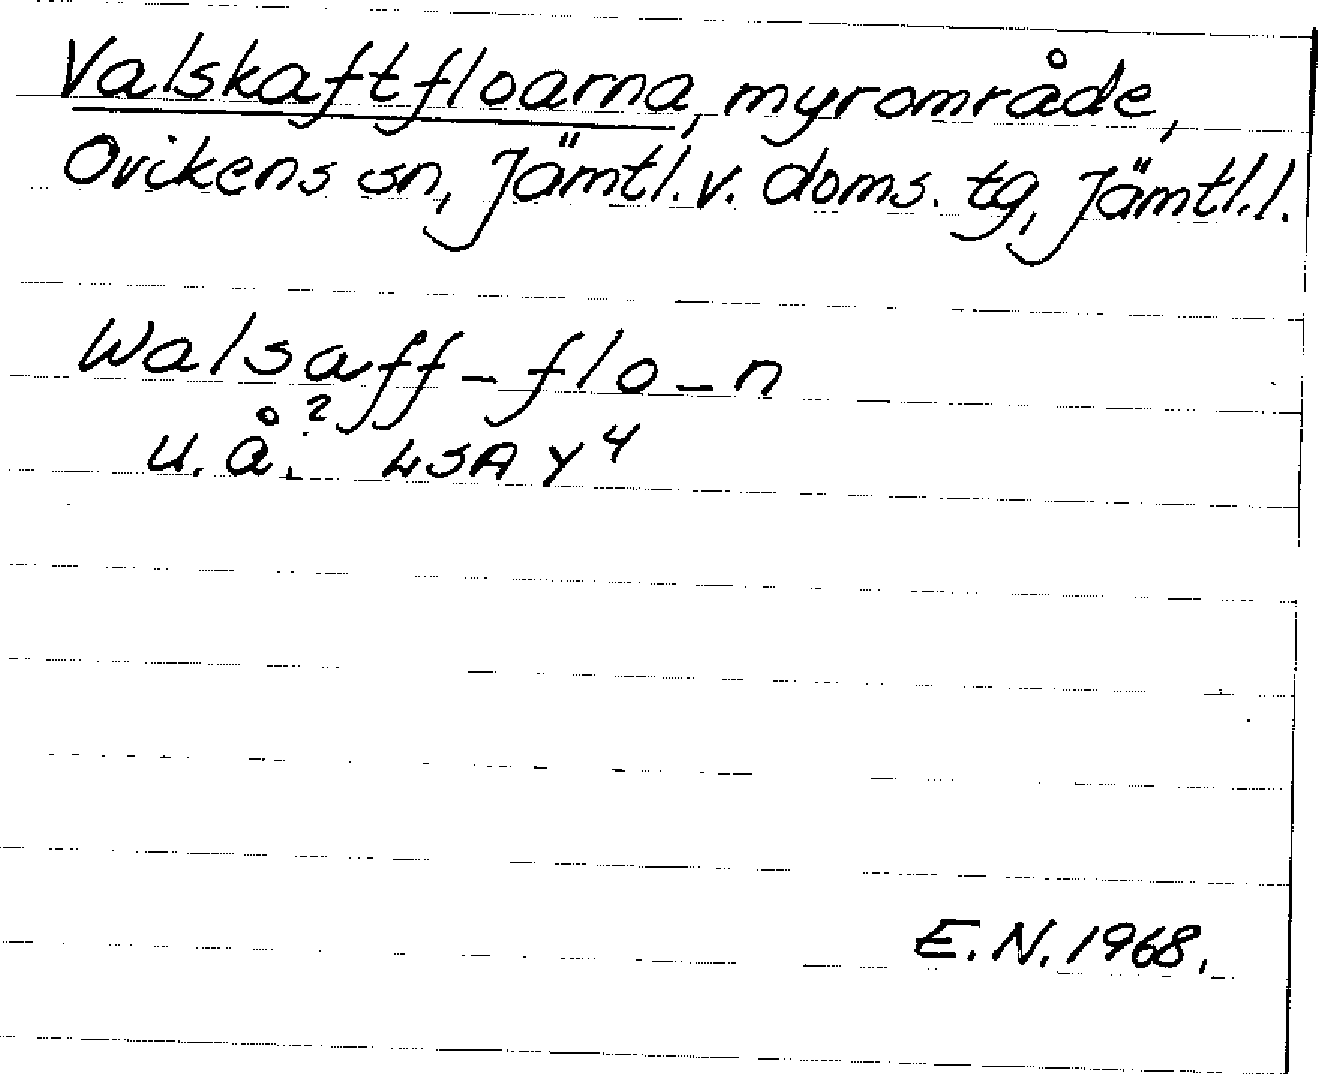 Valskaftfloarna, myrområde,
Ovikens sn, Jämtl. v. doms. tg, Jämtl. l.
Walsaff-flo-n
?
u. å. LSA Y 4
E. N. 1968.